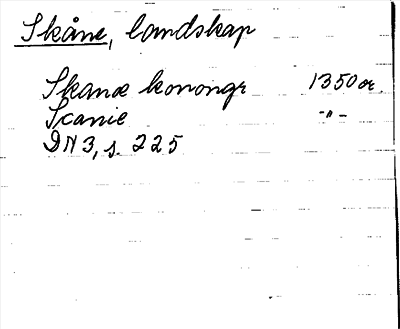 Skåne, landskap
Skanæ konongr 1350 or.
Scanie -"-
DN 3, s. 225